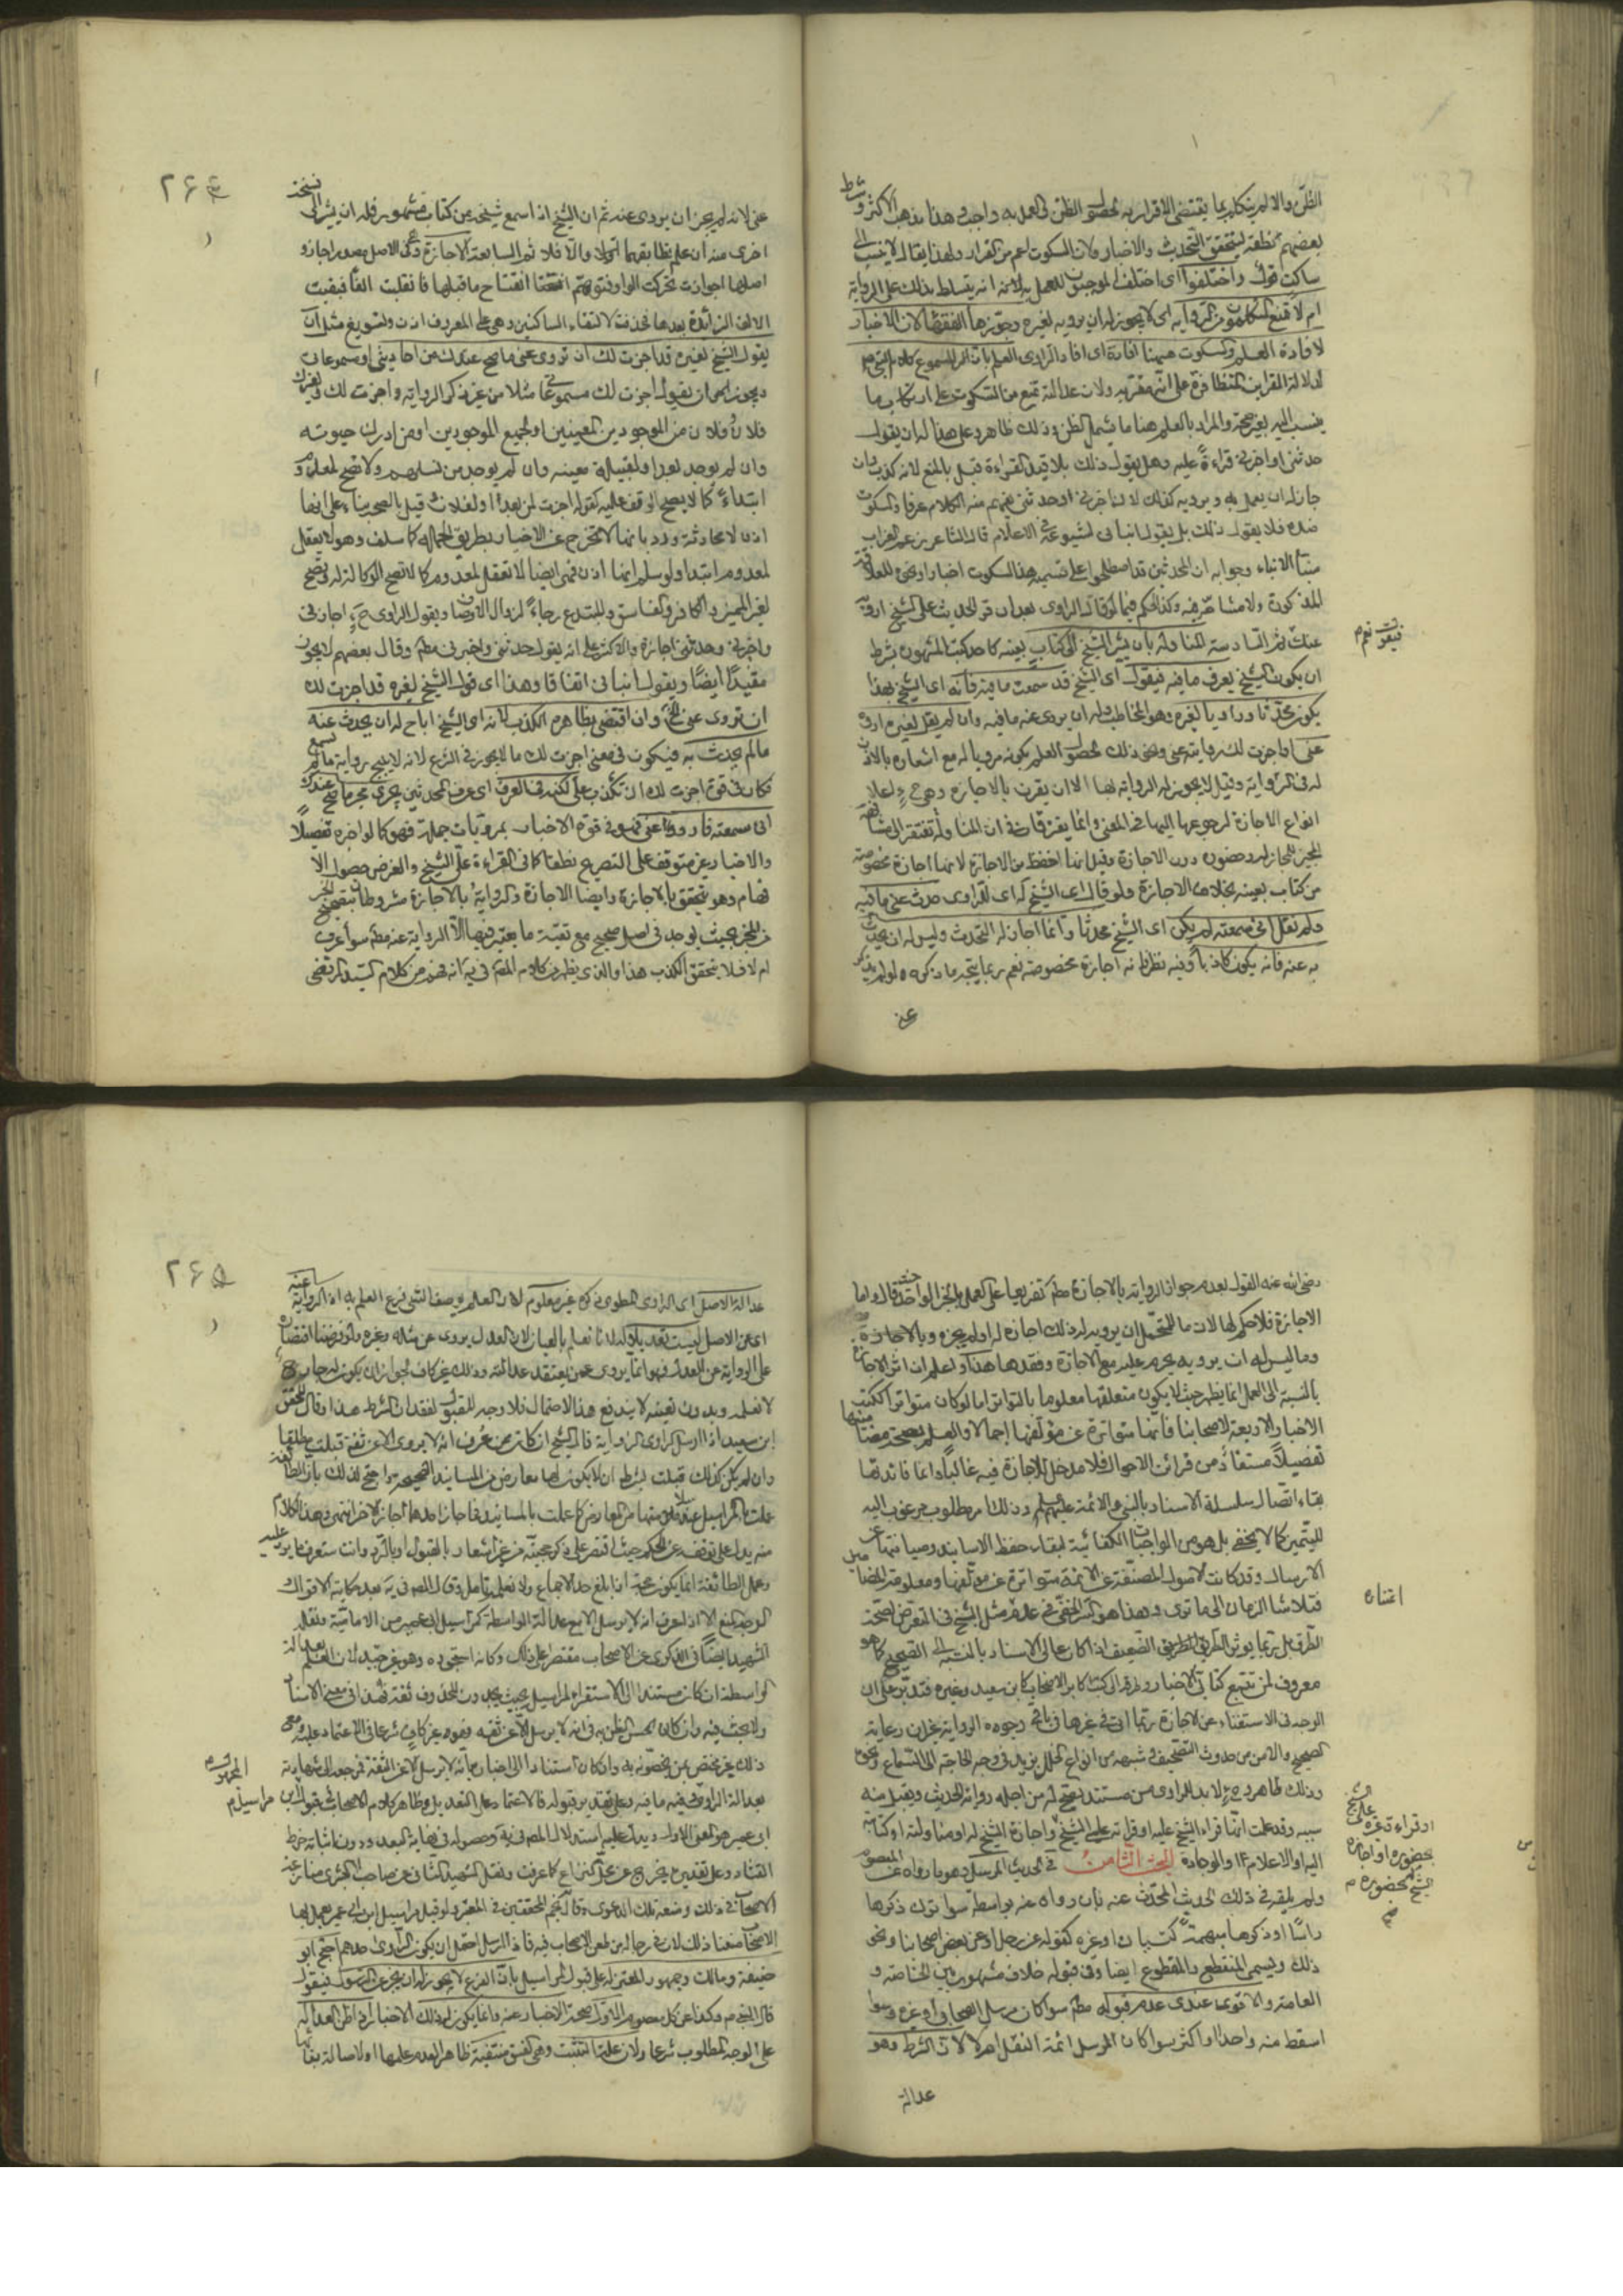 الظن والا لم يتكلم بما يقتضى الاقرار به لحصول الظن فى العمل به واجب وهذا مذهب الاكثر وشرط
بعضهم نطقه ليتحقق التحديث والاخبار ولان السكوت اعم من القرار ولهذا يقال لا ينسب الى
ساكت قول واختلفوا اى اختلف الموجبون للعمل به لانه انه يتسلط بذلك على الرواية
ام لا فمنع المتكلمون من الرواية اى لا يجوز له ان يرويه لغيره وجوزها الفقهاء لان الاخبار
لافادة العلم والسكوت هيهنا افادة اى افاد الراوى العلم بان المسموع كلام النبى
لدلالة القراين المتظافرة على انه مقر به ولان عدالته تمنع من السكوت على ارتكاب ما
ينسب اليه بغير صحة والمراد بالعلم هنا ما يشمل الظن وذلك ظاهر وعلى هذا له ان يقول
حدثنى او اخبرنى قراءة عليه وهل يقول ذلك بلا قيد القراءة قيل بالمنع لانه كذب وان
جاز له ان يعمل به ويرويه كذلك لان اخبرنى او حدثنى يفهم منه الكلام عرفا والسكوت
ضده فلا يقول ذلك بل يقول انبانى لشيوعه فى الاعلام قال الشاعر زعم الغراب
منبئ الانباء وجوابه ان المحدثين قد اصطلحوا على تسمية هذا السكوت اخبارا ونحوه للعلاقة
المذكورة ولا مشاحة فيه وكذا الحكم فيما لو قال الراوى بعد ان قرء الحديث على الشيخ ارويه
عنك ثم السادسة المناولة بان يشير الشيخ الى كتاب بعينه كاحد كتب المشهورة بشرط
فيقول نعم م
ان يكون الشيخ يعرف ما فيه فيقول اى الشيخ قد سمعت ما فيه فانه اى الشيخ بهذا
يكون محدثا وراويا لغيره وهو المخاطب وله ان يروى عنه ما فيه وان لم يقل لغيره اروه
عنى او اجزت لك روايته عنى ونحو ذلك لحصول العلم بكونه مرويا له مع اشعاره بالاذن
له فى الرواية وقيل لا يجوز له الرواية بها الا ان يقرن بالاجازة وهى ح اعلا
انواع الاجازة لرجوعها اليها فى المعنى وانما يفترقان فى ان المناولة تفتقر الى مشافهة
المجيز للمجاز له وحضوره دون الاجازة وقيل انها اخفض من الاجازة لانها اجازة مخصوصة
من كتاب بعينه بخلاف الاجازة ولو قال اى الشيخ له اى للراوى حدث عنى ما فيه
ولم يقل انى سمعته لم يكن اى الشيخ محدثا وانما اجاز له التحدث وليس له ان يحدث
به عنه فانه يكون كاذبا وفيه نظر لانه اجازة مخصوصة نعم ربما يتجه ما ذكره لو لم يذكر
عنى
٢۶۴
عنى لانه لم يجز ان يروى عنه ثم ان الشيخ اذا سمع نسخة من كتاب مشهور فله ان يشير الى نسخة
اخرى منه ان علم تطابقهما اولا والا فلا ثم السابعة الاجازة وهى فى الاصل مصدر اجاز و
اصلها اجوازت تحركت الواو فتوهم انفتاح ما قبلها فانقلبت الفا فبقيت
الالف الزائدة بعدها فحذفت لالتقاء الساكنين وهى على المعروف اذن وتسويغ مثل ان
يقول الشيخ لغيره قد اجزت لك ان تروى عنى ما صح عندك من احاديثى او مسموعاتى
ويجوز ايضا ان يقول اجزت لك مسموعاتى مثلا من غير ذكر الرواية واجزت لك ولغيرك
فلان وفلان من الموجودين المعينين او لجميع الموجودين او من ادرك حيوته
وان لم يوجد بعد او لقبيلة معينة وان لم يوجد من نسلهم ولا تصح لمعدوم
ابتداء كما لا يصح الوقف عليه كقوله اجزت لمن يولد لفلان قيل بالصحة بناء على انها
اذن لا محادثة ورد بانها لا تخرج عن الاخبار بطريق الجملة كما سلف وهو لا يعقل
لمعدوم ابتدا ولو سلم انها اذن فهى ايضا لا تعقل لمعدوم كما لا تصح الوكالة له وتصح
لغير المميز والكافر والفاسق والمبتدع رجاء لزوال الاوصاف ويقول الراوى ح اجازنى
واخبرنى وحدثنى اجازة والاكثر على انه يقول حدثنى واخبرنى مطلقا وقال بعضهم لا يجوز
مقيدا ايضا ويقول انبانى اتفاقا وهذا اى قول الشيخ لغيره قد اجزت لك
ان تروى عنى الخ وان اقتضى بظاهره الكذب لانه اى الشيخ اباح له ان يحدث عنه
ما لم يحدث به فيكون فى معنى اجزت لك ما لا يجوز فى الشرع لانه لا يبيح رواية ما لم يسمع
فكان فى قوة اجزت لك ان تكذب على لكنه فى العرف اى عرف المحدثين يجرى مجرى ما صح عندك
انى سمعته فاروه عنى فهو فى قوة الاخبار بمرويات جملة فهو كما لو اخبره تفصيلا
والاخبار غير متوقف على التصريح نطقا كما فى القراءة على الشيخ والغرض حصول الا
فهام وهو يتحقق بالاجازة وايضا الاجازة والرواية بالاجازة مشروطان بتصحيح الخبر
من المخبر بحيث يوجد فى اصل صحيح مع بقية ما يعتبر فيها الا الرواية عنه مطلقا سواء عرف
ام لا فلا يتحقق الكذب هذا والذى يظهر من كلام المصنف فى يه انه فهم من كلام السيد المرتضى
رضى الله عنه القول بعدم جواز الرواية بالاجازة مطلقا تفريعا على العمل بالخبر الواحد حيث قال واما
الاجازة فلا حكم لها لان ما للمتحمل ان يرويه له ذلك اجازه له او لم يجزه وبالاجازة
وما ليس له ان يرويه يحرم عليه مع الاجازة وفقدها هذا واعلم ان اثر الاجازة
بالنسبة الى العمل انما يظهر حيث لا يكون متعلقها معلوما بالتواتر اما لو كان متواتر الكتب
الاخبار الاربعة لاصحابنا فانها متواترة عن مؤلفيها اجمالا والعلم بصحة مضامينها
تفصيلا مستفاد من قرائن الاحوال فلا مدخل للاجازة فيه غالبا وانما فائدتها
بقاء اتصال سلسلة الاسناد بالنبى والائمة عليهم السلام وذلك امر مطلوب مرغوب اليه
للتيمن كما لا يخفى بل هو من الواجبات الكفائية لبقاء حفظ الاسانيد وصيانتها عن
الارسال وقد كانت الاصول المصنفة عن الائمة متواترة عن مؤلفيها ومعلومة المضامين
فتلاشا الزمان الى ما ترى وهذا هو السر الخفى فى عدم مثل الشيخ فى التعرض لصحة
اعتناء
الطرق بل ربما يؤثر الطريق الضعيف اذا كان عالى الاسناد بالنسبة الى الصحيح كما هو
معروف لمن تتبع كتابى الاخبار ونظر الى كتب اكابر الاصحاب كابن سعيد وغيره فتدبر على ان
الوجه فى الاستغناء عن الاجازة ربما اتى فى غيرها من باقى وجوه الرواية غير ان رعاية
الصحيح والامن من حدوث التصحيف وشبهه من انواع الخلل يزيد فى وجه الحاجة الى السماع ونحوه
وذلك ظاهر وح لا بد للراوى من مستند تصح له من اجله رواية الحديث ويقبل منه
سببه وقد علمت انها قراءة الشيخ عليه او قراءته على الشيخ واجازة الشيخ له او مناولته او كتابته
او قراءة غيره على الشيخ
بحضوره او اجازة
الشيخ بحضوره م
صح
اليه او الاعلام او الوجادة البحث الثامن فى الحديث المرسل وهو ما رواه عن المعصوم
ولم يلقه فى ذلك الحديث المحدث عنه بان رواه عنه بواسطة سواء ترك ذكرها
راسا او ذكرها مبهمة لنسيان او غيره كقوله عن رجل او عن بعض اصحابنا ونحو
ذلك ويسمى المنقطع والمقطوع ايضا وفى قبوله خلاف مشهور بين الخاصة و
العامة والاقوى عندى عدم قبوله مطلقا سواء كان مرسل الصحابى او غيره وسواء
اسقط منه واحدا او اكثر سواء كان المرسل ائمة النقل ام لا لان الشرط وهو
عدالة
٢۶۵
عدالة الاصل اى الراوى المطوى ذكره غير معلوم لان العلم بوصف الشئ فرع العلم به اذ الرواية عنه
اى عن الاصل ليست تعديلا له لانا نعلم بالعيان ان العدل يروى عن مثله وغيره ولو فرضنا اقتصاره
على الرواية عن العدل فهو انما يروى عمن يعتقد عدالته وذلك غير كاف لجواز ان يكون له جارح
لا نعلمه وبدون تعيينه لا يندفع هذا الاحتمال فلا وجه للقبول لفقدان الشرط هذا وقال المحقق
ابن سعيد اذا ارسل الراوى الرواية قال الشيخ ان كان ممن عرف انه لا يروى الا عن ثقة قبلت مطلقا
وان لم يكن كذلك قبلت بشرط ان لا يكون لها معارض من المسانيد الصحيحة واحتج لذلك بان الطائفة
عملت بالمراسيل عند سلامتها من المعارض كما عملت بالمسانيد فما اجاز احدهما اجاز الاخر انتهى وهذا الكلام
منه يدل على توقفه عن الحكم حيث اقتصر على ذكر حجته من غير اشعار بالقبول او بالرد وانت ستعرف ما يرد عليه
وعمل الطائفة انما يكون حجة اذا بلغ حد الاجماع ولا نعلمه وتامل وقال المصنف فى يه بعد حكاية الاقوال
الوجه المنع الا اذا عرف انه لا يرسل الا مع عدالة الواسطة كمراسيل ابن ابى عمير من الامامية ونقله
الشهيد ايضا فى الذكرى عن الاصحاب مقتصرا على ذلك وكانه استجوده وهو غير جيد لان العلم بعدالة
الواسطة ان كان مستندا الى الاستقراء لمراسيله بحيث يجد المحذوف ثقة فهذا فى معنى الاسناد
ولا بحث فيه وان كان لحسن الظن به فى انه لا يرسل الا عن ثقة فهو غير كاف شرعا فى الاعتماد عليه ومع
ذلك غير مختص بمن يخصونه به وان كان استنادا الى اخباره بانه لا يرسل الا عن الثقة فمرجعه الى شهادته
بعدالة الراوى وفيه ما فيه وعلى تقدير قبوله فالاعتماد على التعديل وظاهر كلام الاصحاب فى قبول مراسيل ابن
المجهول
مراسيل م
ابى عمير هو المعنى الاول ويدل عليه استدلال المصنف فى يه وحصوله فى نهاية البعد ودون اثباته خرط
القتاد وعلى تقديره يخرج عن محل النزاع كما عرفت ونقل الشهيد الثانى عن صاحب البشرى منازعة
الاصحاب فى ذلك ومنعه تلك الدعوى وقال نجم المحققين فى المعتبر ولو قيل مراسيل ابن ابى عمير يعمل بها
الاصحاب منعنا ذلك لان فى رجاله من طعن الاصحاب فيه فاذا ارسل احتمل ان يكون الراوى احدهم احتج ابو
حنيفة ومالك وجمهور المعتزلة على قبول المراسيل بان الفرع لا يجوز له ان يخبر عن الرسول فيقول
قال النبى م وكذا عن كل معصوم الا وله صحة الاخبار عنه وانما يكون له ذلك الاخبار اذا ظن العدالة
على الوجه المطلوب شرعا ولان علة التثبت وهى الفسق منتفية ظاهرا لعدم علمها او لاصالة بقائها